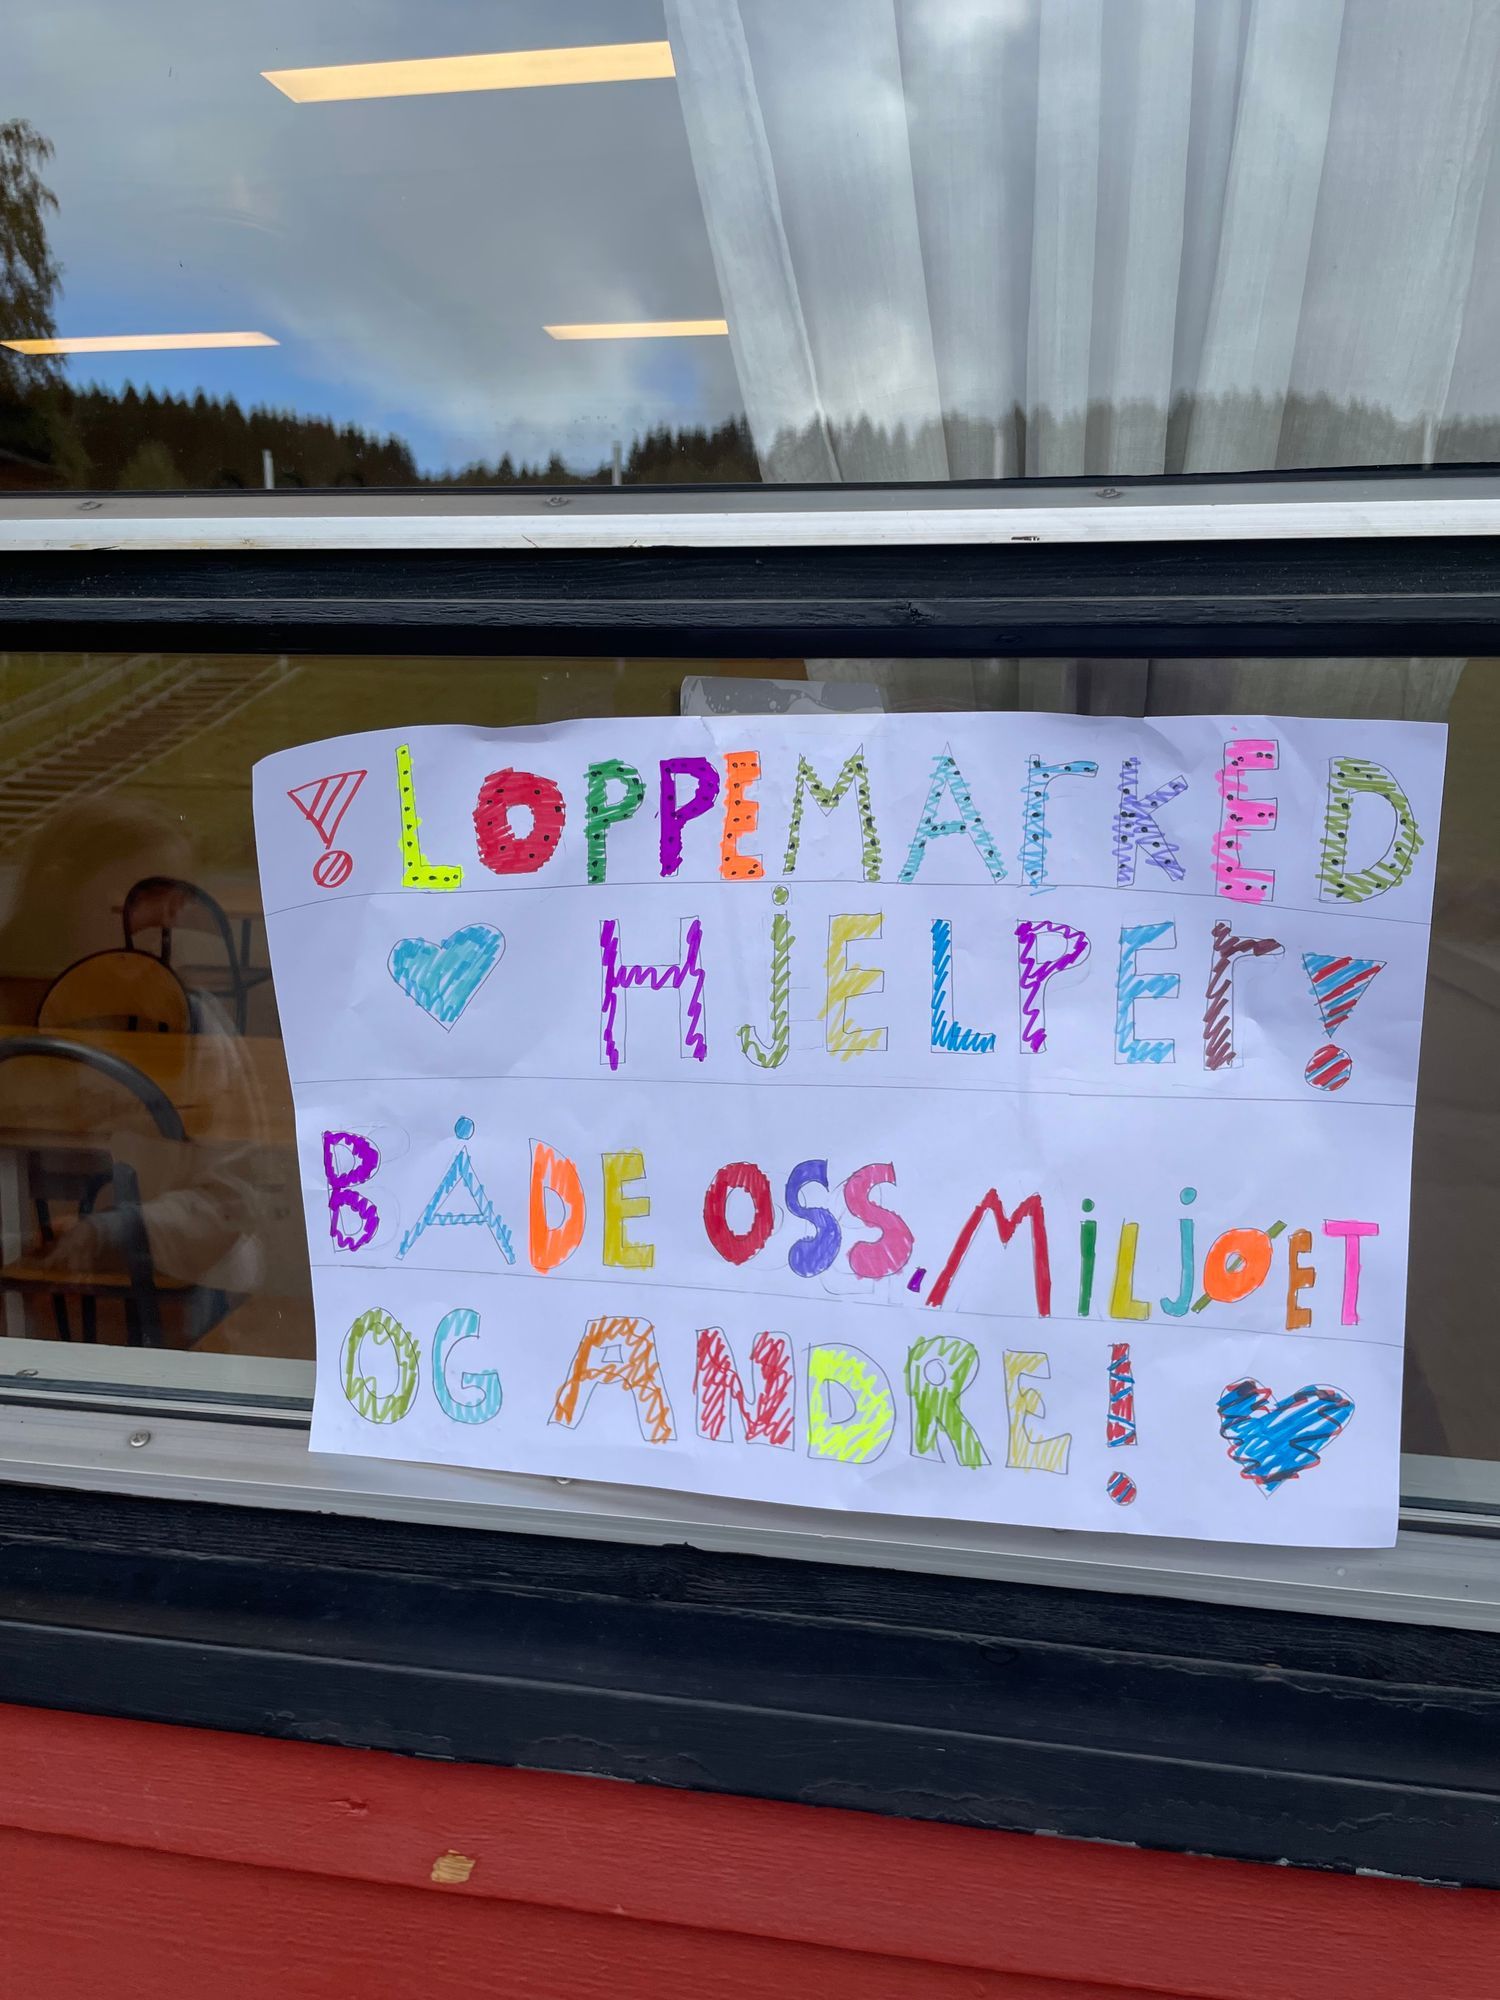 ! LOPPEMArKED
HjELPEr!
BÅDE OSS, MiLjØET
OG ANDRE!